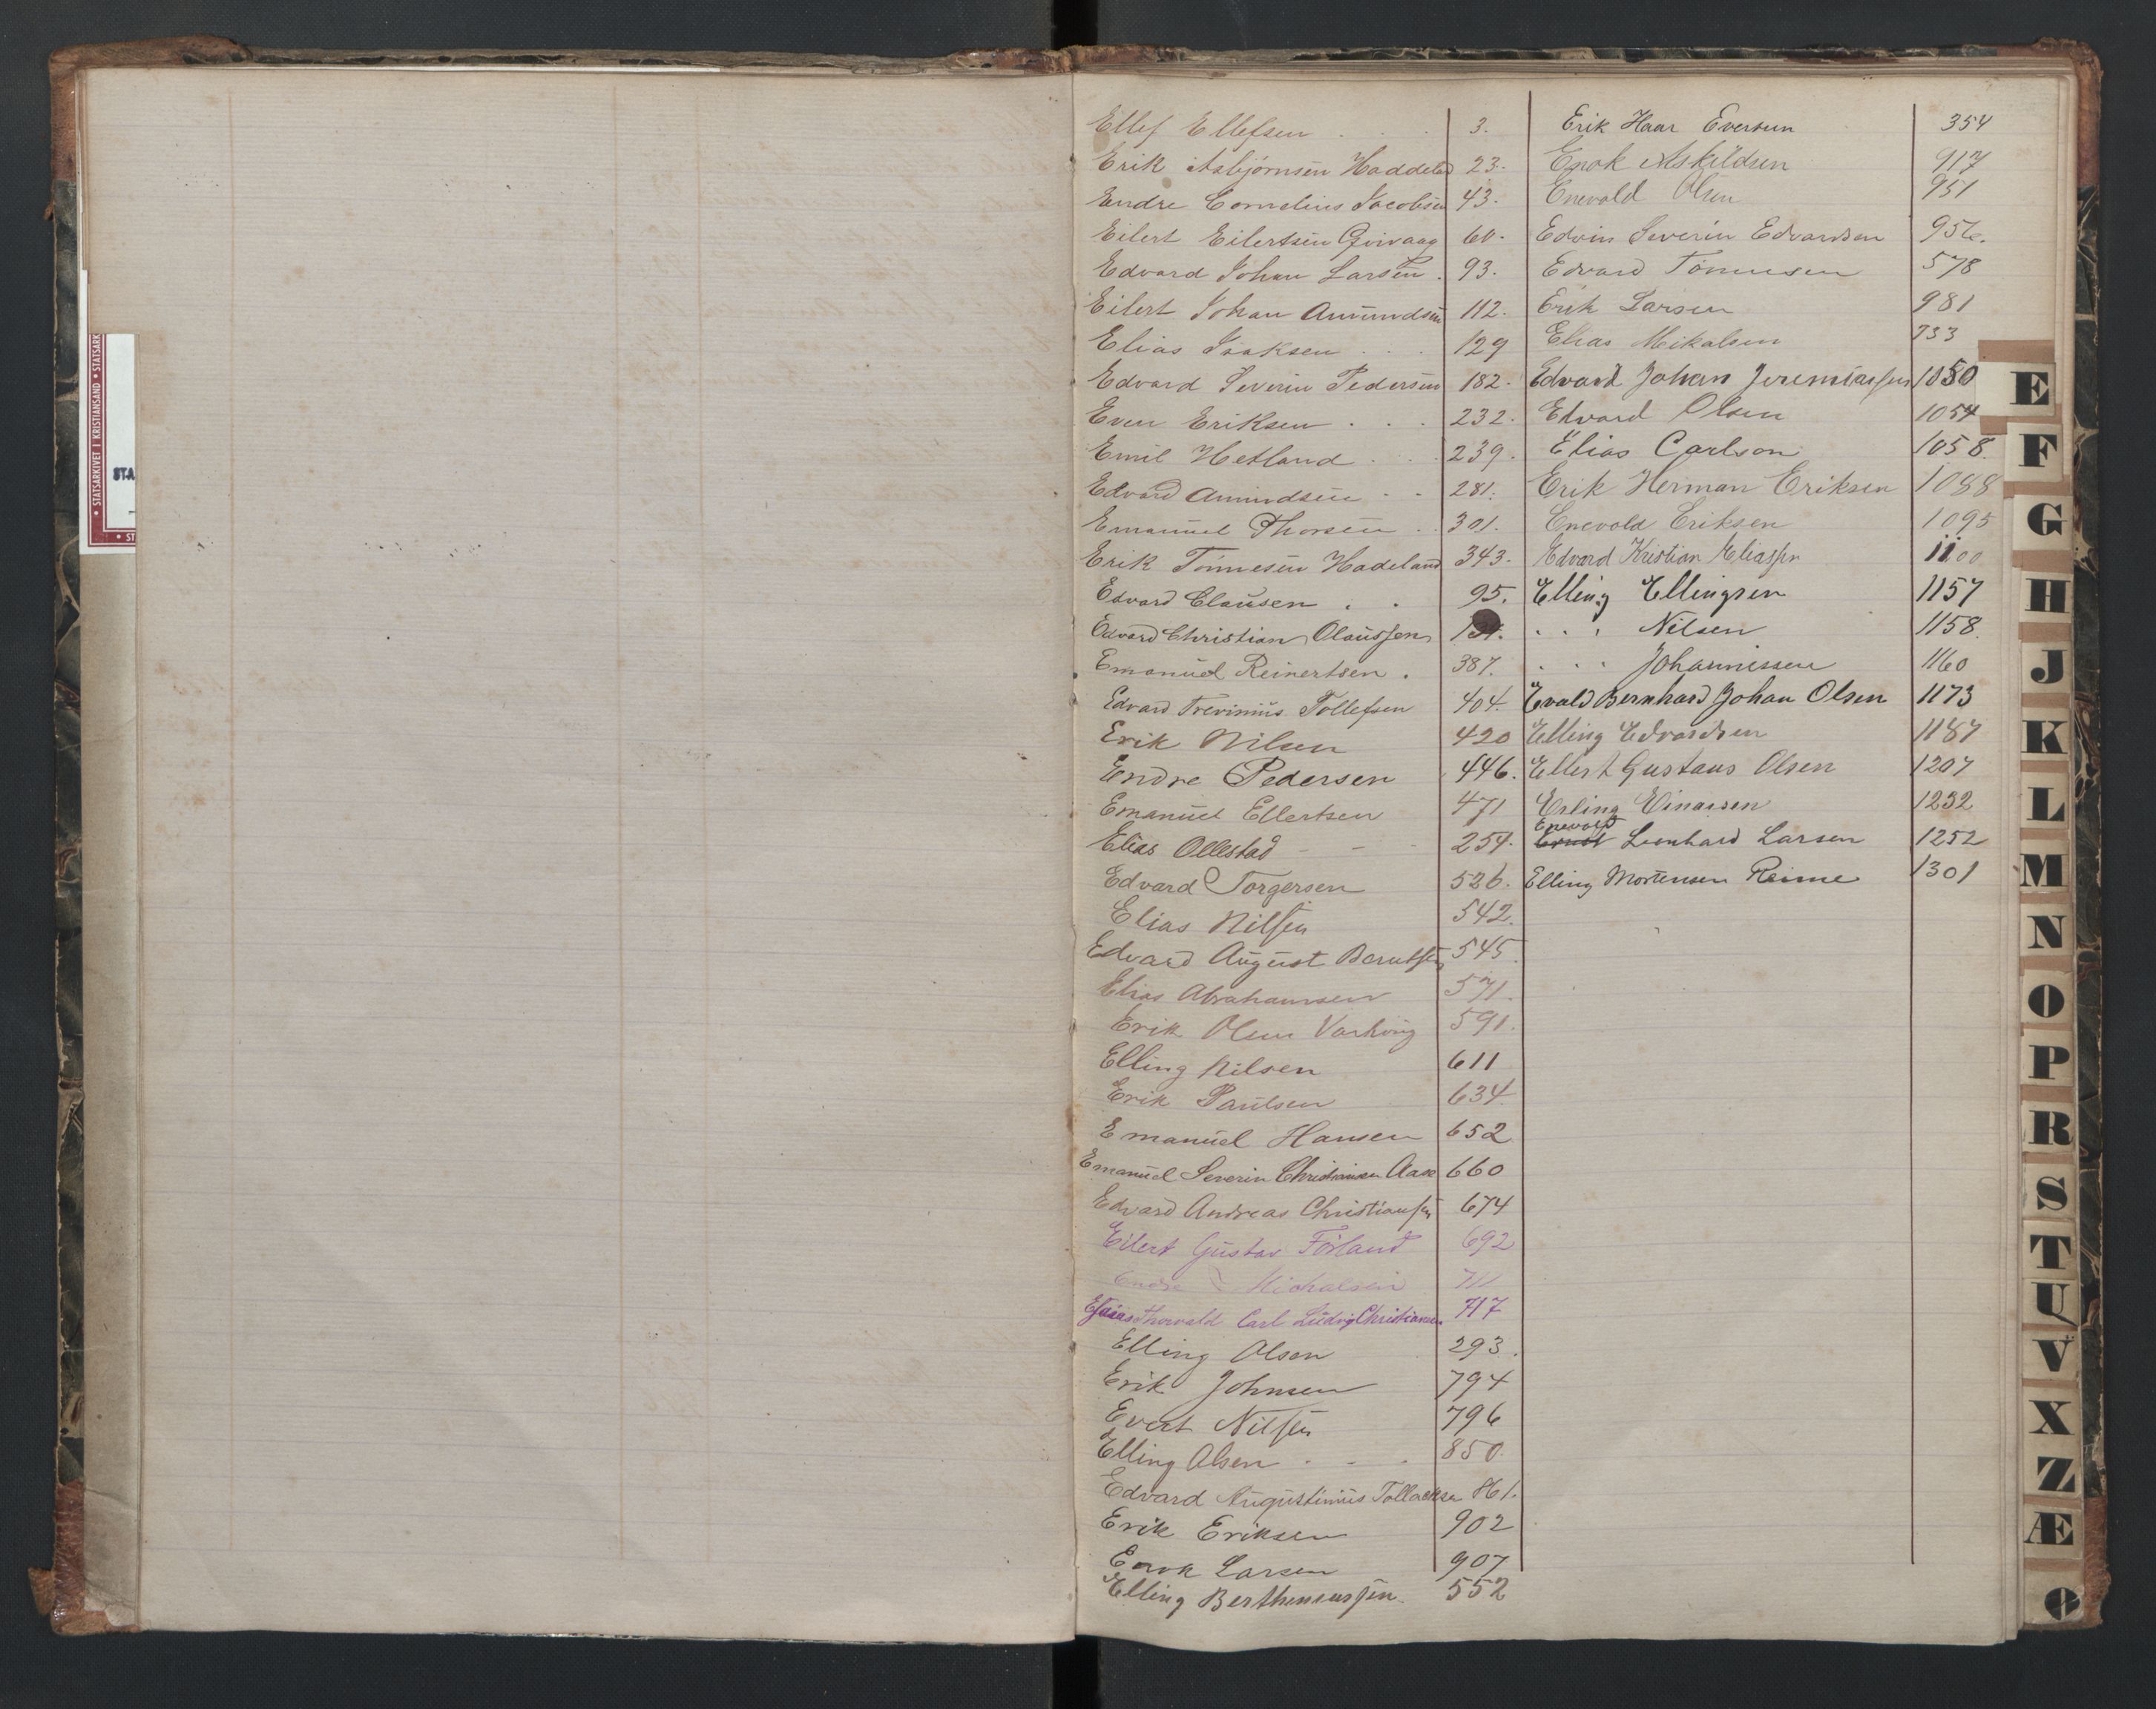 Ellef Ellefsen . . . 3.
Erik Asbjørnsen Haddeland 23.
Endre Cornelius Jacobsen 43.
Eilert Eilertsen Qvivaag 60.
Edvard Johan Larsen . 93.
Eilert Johan Amundsen 112.
Elias Isaksen . . . 129
Edvard Severin Pedersen 182.
Even Eriksen . . . 232.
Emil Hetland . . . 239.
Edvard Amundsen . . 281.
Emanuel Thorsen . . 301.
Erik Tønnesen Hadeland 343.
Edvard Clausen . . 95.
Edvard Christian Olaussen
Emanuel Reinertsen . 387.
Edvard Trevinius Tollefsen 404.
Erik Nilsen 420
Endre Pedersen 446.
Emanuel Ellertsen 471
Elias Ollestad - - - 254.
Edvard Torgersen 526.
Elias Nilssen 542.
Edvard August Berntssen 545.
Elias Abrahamsen 571.
Erik Olsen Varhoug 591.
Elling Nilsen 611
Erik Paulsen 634.
Emanuel Hansen 652
Emanuel Severin Christiansen Aase 660
Edvard Andreas Christiansen 674
Eilert Gustav Förland 692
Endre Michalsen 711
Esaias Thorvald Carl Ludvig Christiansen 717
Elling Olsen 293.
Erik Johnsen 794
Evert Nilssen 796
Elling Olsen . - . 850.
Edvard Augustinius Tollaksen
Erik Eriksen 902
Enok Larsen 907
Elling Bertheussen 552
Erik Haar Eversen 354
Enok Askildsen 917
Enevold Olsen 951
Edvin Severin Edvardsen 956.
Edvard Tönnesen 578
Erik Larsen 981
Elias Mikalsen 733
Edvard Johan Jeremiassen 1050
Edvard Olsen 1054
Elias Carlson 1058.
Erik Herman Eriksen 1088
Enevold Eriksen 1095
Edvard Kristian Eliassen 1100
Elling Ellingsen 1157
. . . Nilsen 1158.
. . . Johannessen 1160
Evald Bernhard Johan Olsen 1173
Elling Edvardsen 1187
Ellert Gustavs Olsen 1207
Erling Einarsen 1232
Enevold
Ernst Leonhard Larsen 1252
Elling Mortensen Reime 1301
E
F
G
H
J
K
L
M
N
O
P
R
S
T
U
V
X
Z
Æ
Ø
• STATSARKIVET I KRISTIANSAND • STATSARK
STA
• ST